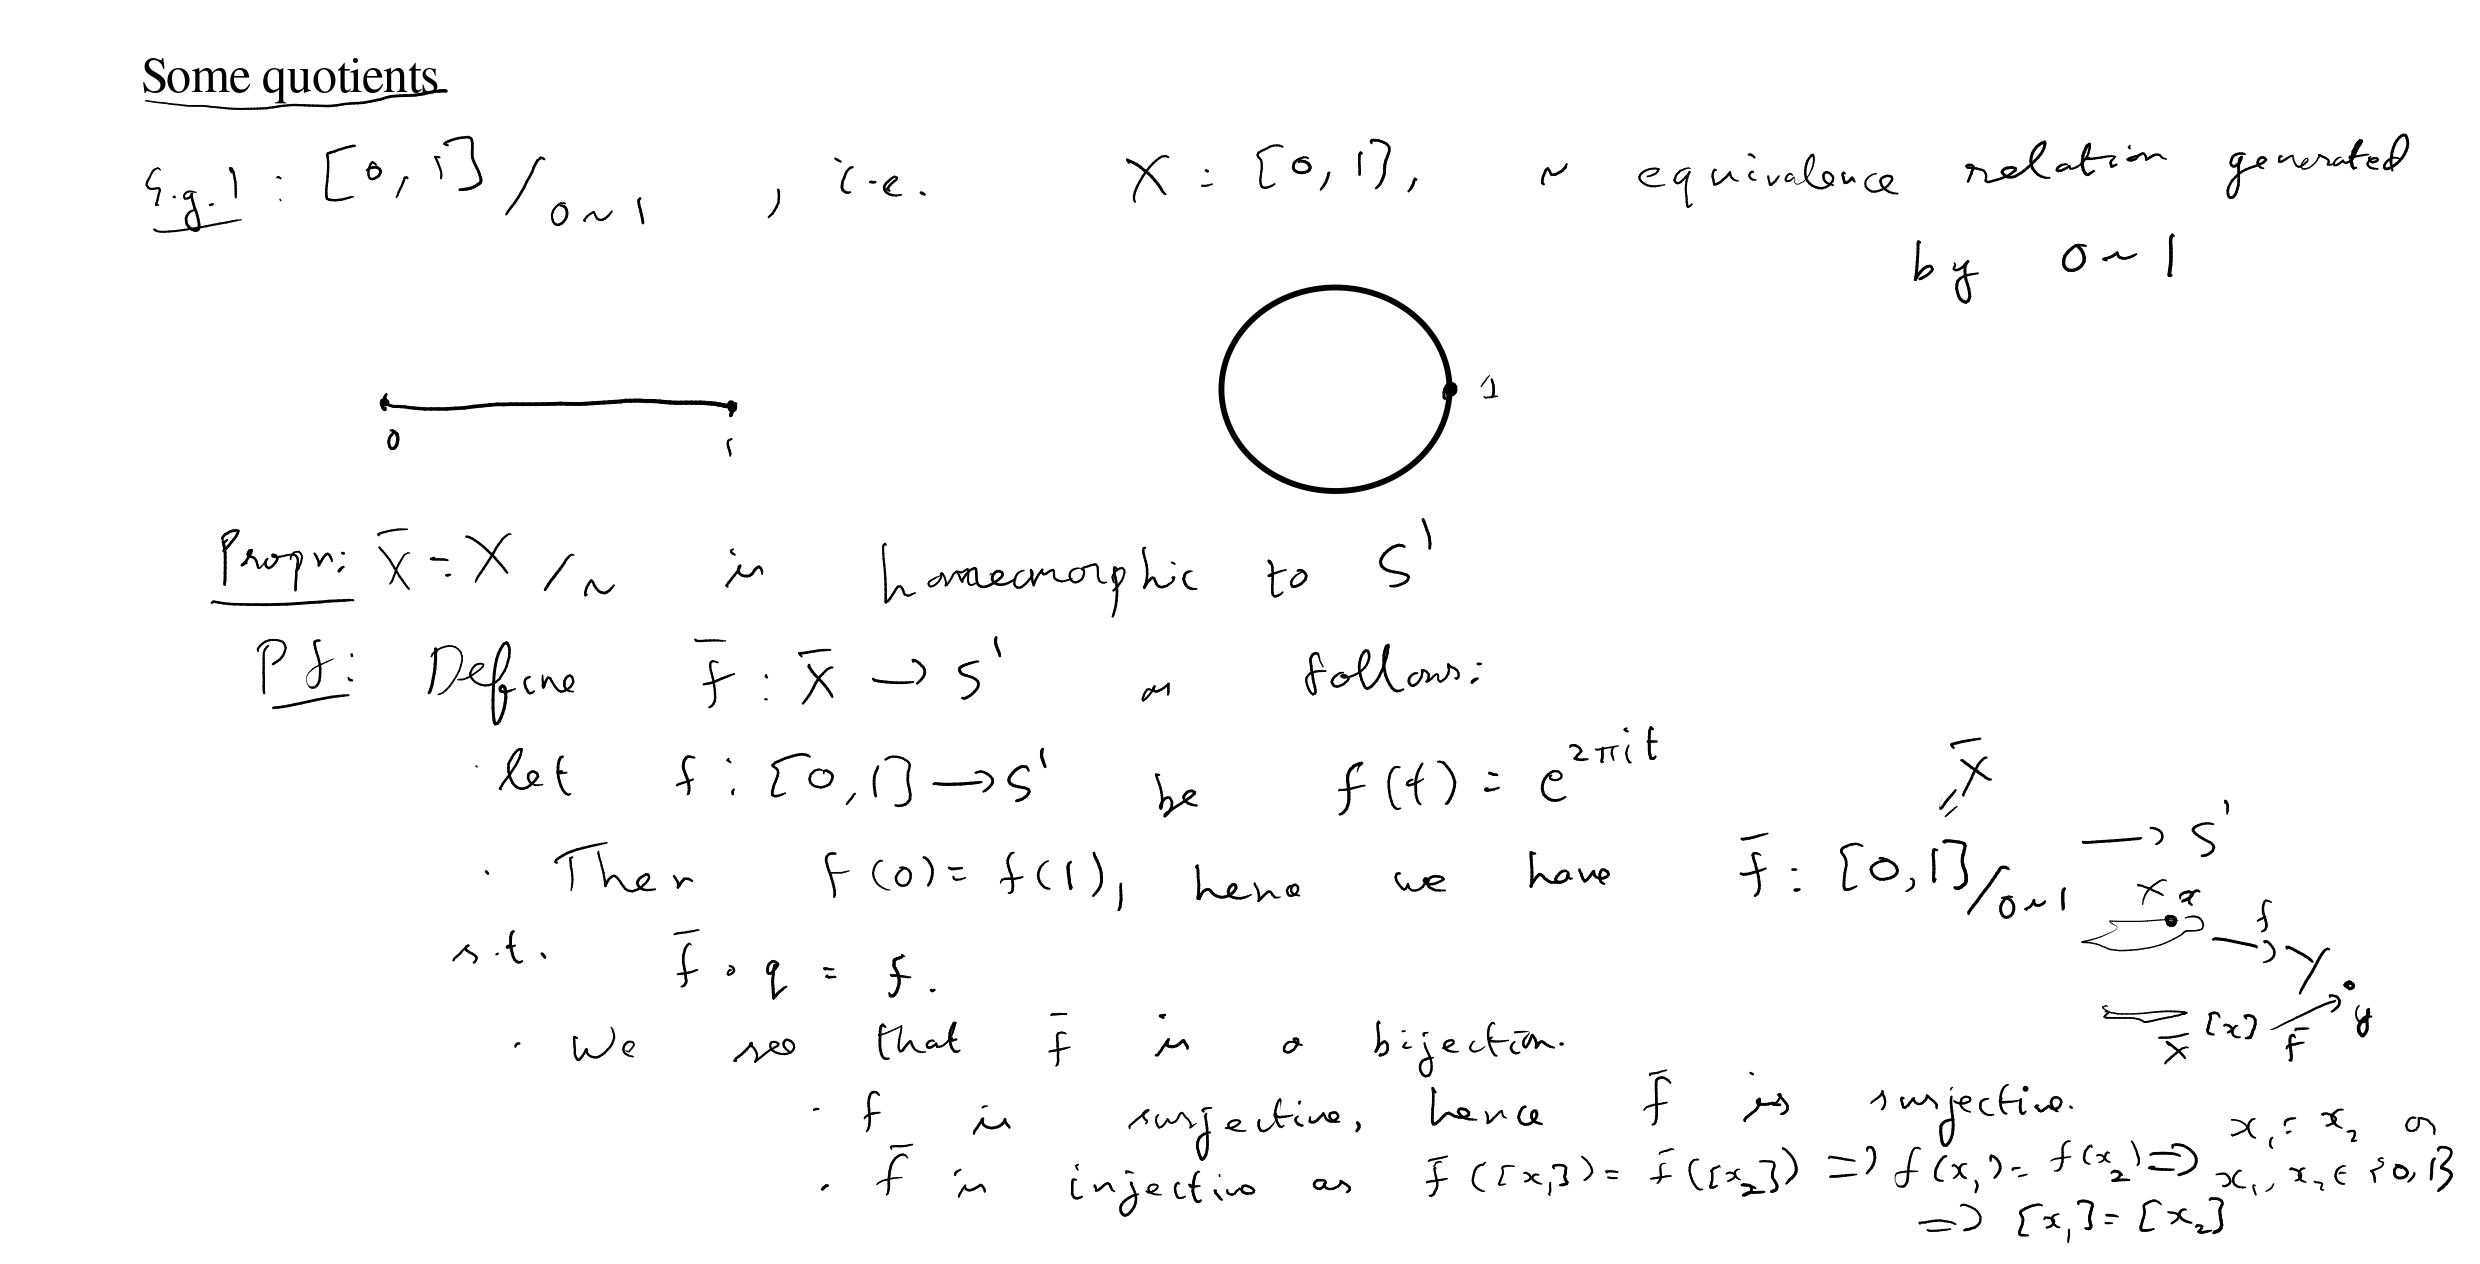 Some quotients
E.g. 1 : [0, 1] / 0~1 , i.e. X = [0, 1], ~ equivalence relation generated
by 0 ~ 1
1
0 1
Propn: X̄ = X / ~ is homeomorphic to S¹
Pf: Define f̄ : X̄ → S¹ as follows:
· let f : [0,1] → S¹ be f(t) = e^{2πit}
X̄
· Then f(0) = f(1), hence we have f̄ : [0,1] / 0~1 → S¹
s.t. f̄ ∘ q = f.
X x f Y
y
X̄ [x] f̄
· We see that f̄ is a bijection.
· f is surjective, hence f̄ is surjective.
· f̄ is injective as f̄([x₁]) = f̄([x₂]) ⇒ f(x₁) = f(x₂) ⇒ x₁ = x₂ or
x₁, x₂ ∈ {0, 1}
⇒ [x₁] = [x₂]